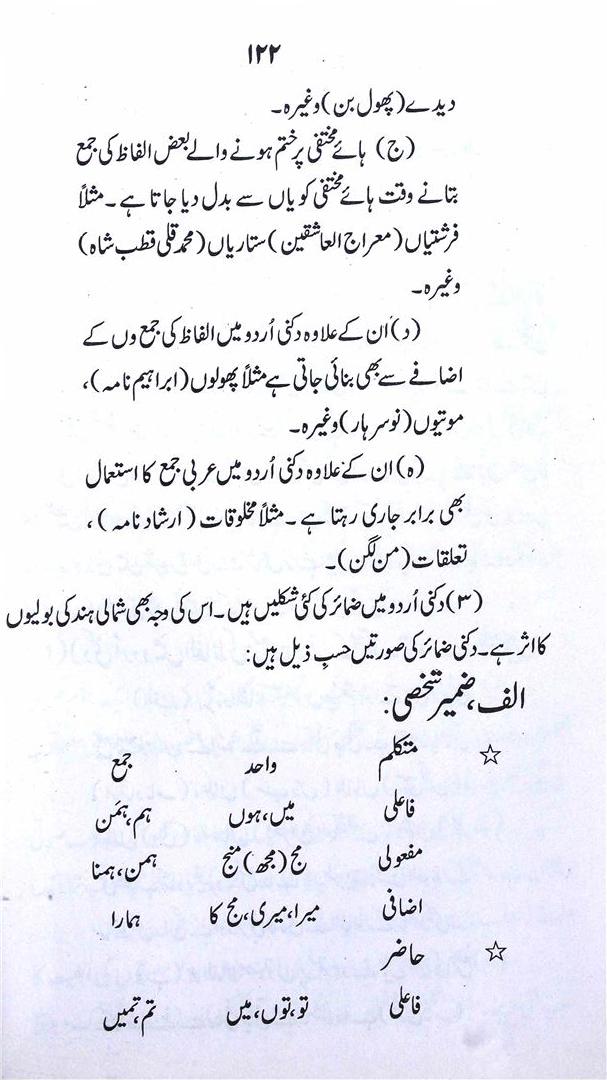 ۱۲۲
دیدے (پھول بن) وغیرہ۔
(ج) ہائے مختفی پر ختم ہونے والے بعض الفاظ کی جمع
بناتے وقت ہائے مختفی کو یاں سے بدل دیا جاتا ہے۔ مثلاً
فرشتیاں (معراج العاشقین) ستاریاں (محمد قلی قطب شاہ)
وغیرہ۔
(د) اُن کے علاوہ دکنی اُردو میں الفاظ کی جمع وں کے
اضافے سے بھی بنائی جاتی ہے مثلاً پھولوں (ابراہیم نامہ)،
موتیوں (نوسر ہار) وغیرہ۔
(ہ) ان کے علاوہ دکنی اُردو میں عربی جمع کا استعمال
بھی برابر جاری رہتا ہے۔ مثلاً مخلوقات (ارشاد نامہ)،
تعلقات (من لگن)۔
(۳) دکنی اُردو میں ضمائر کی کئی شکلیں ہیں۔ اس کی وجہ بھی شمالی ہند کی بولیوں
کا اثر ہے۔ دکنی ضمائر کی صورتیں حسبِ ذیل ہیں:
الف، ضمیر شخصی:
☆ متکلم واحد جمع
فاعلی میں، ہوں ہم، ہمَن
مفعولی مج (مجھ) منج ہمن، ہمنا
اضافی میرا، میری، مج کا ہمارا
☆ حاضر
فاعلی تو، توں، میں تم، تمیں